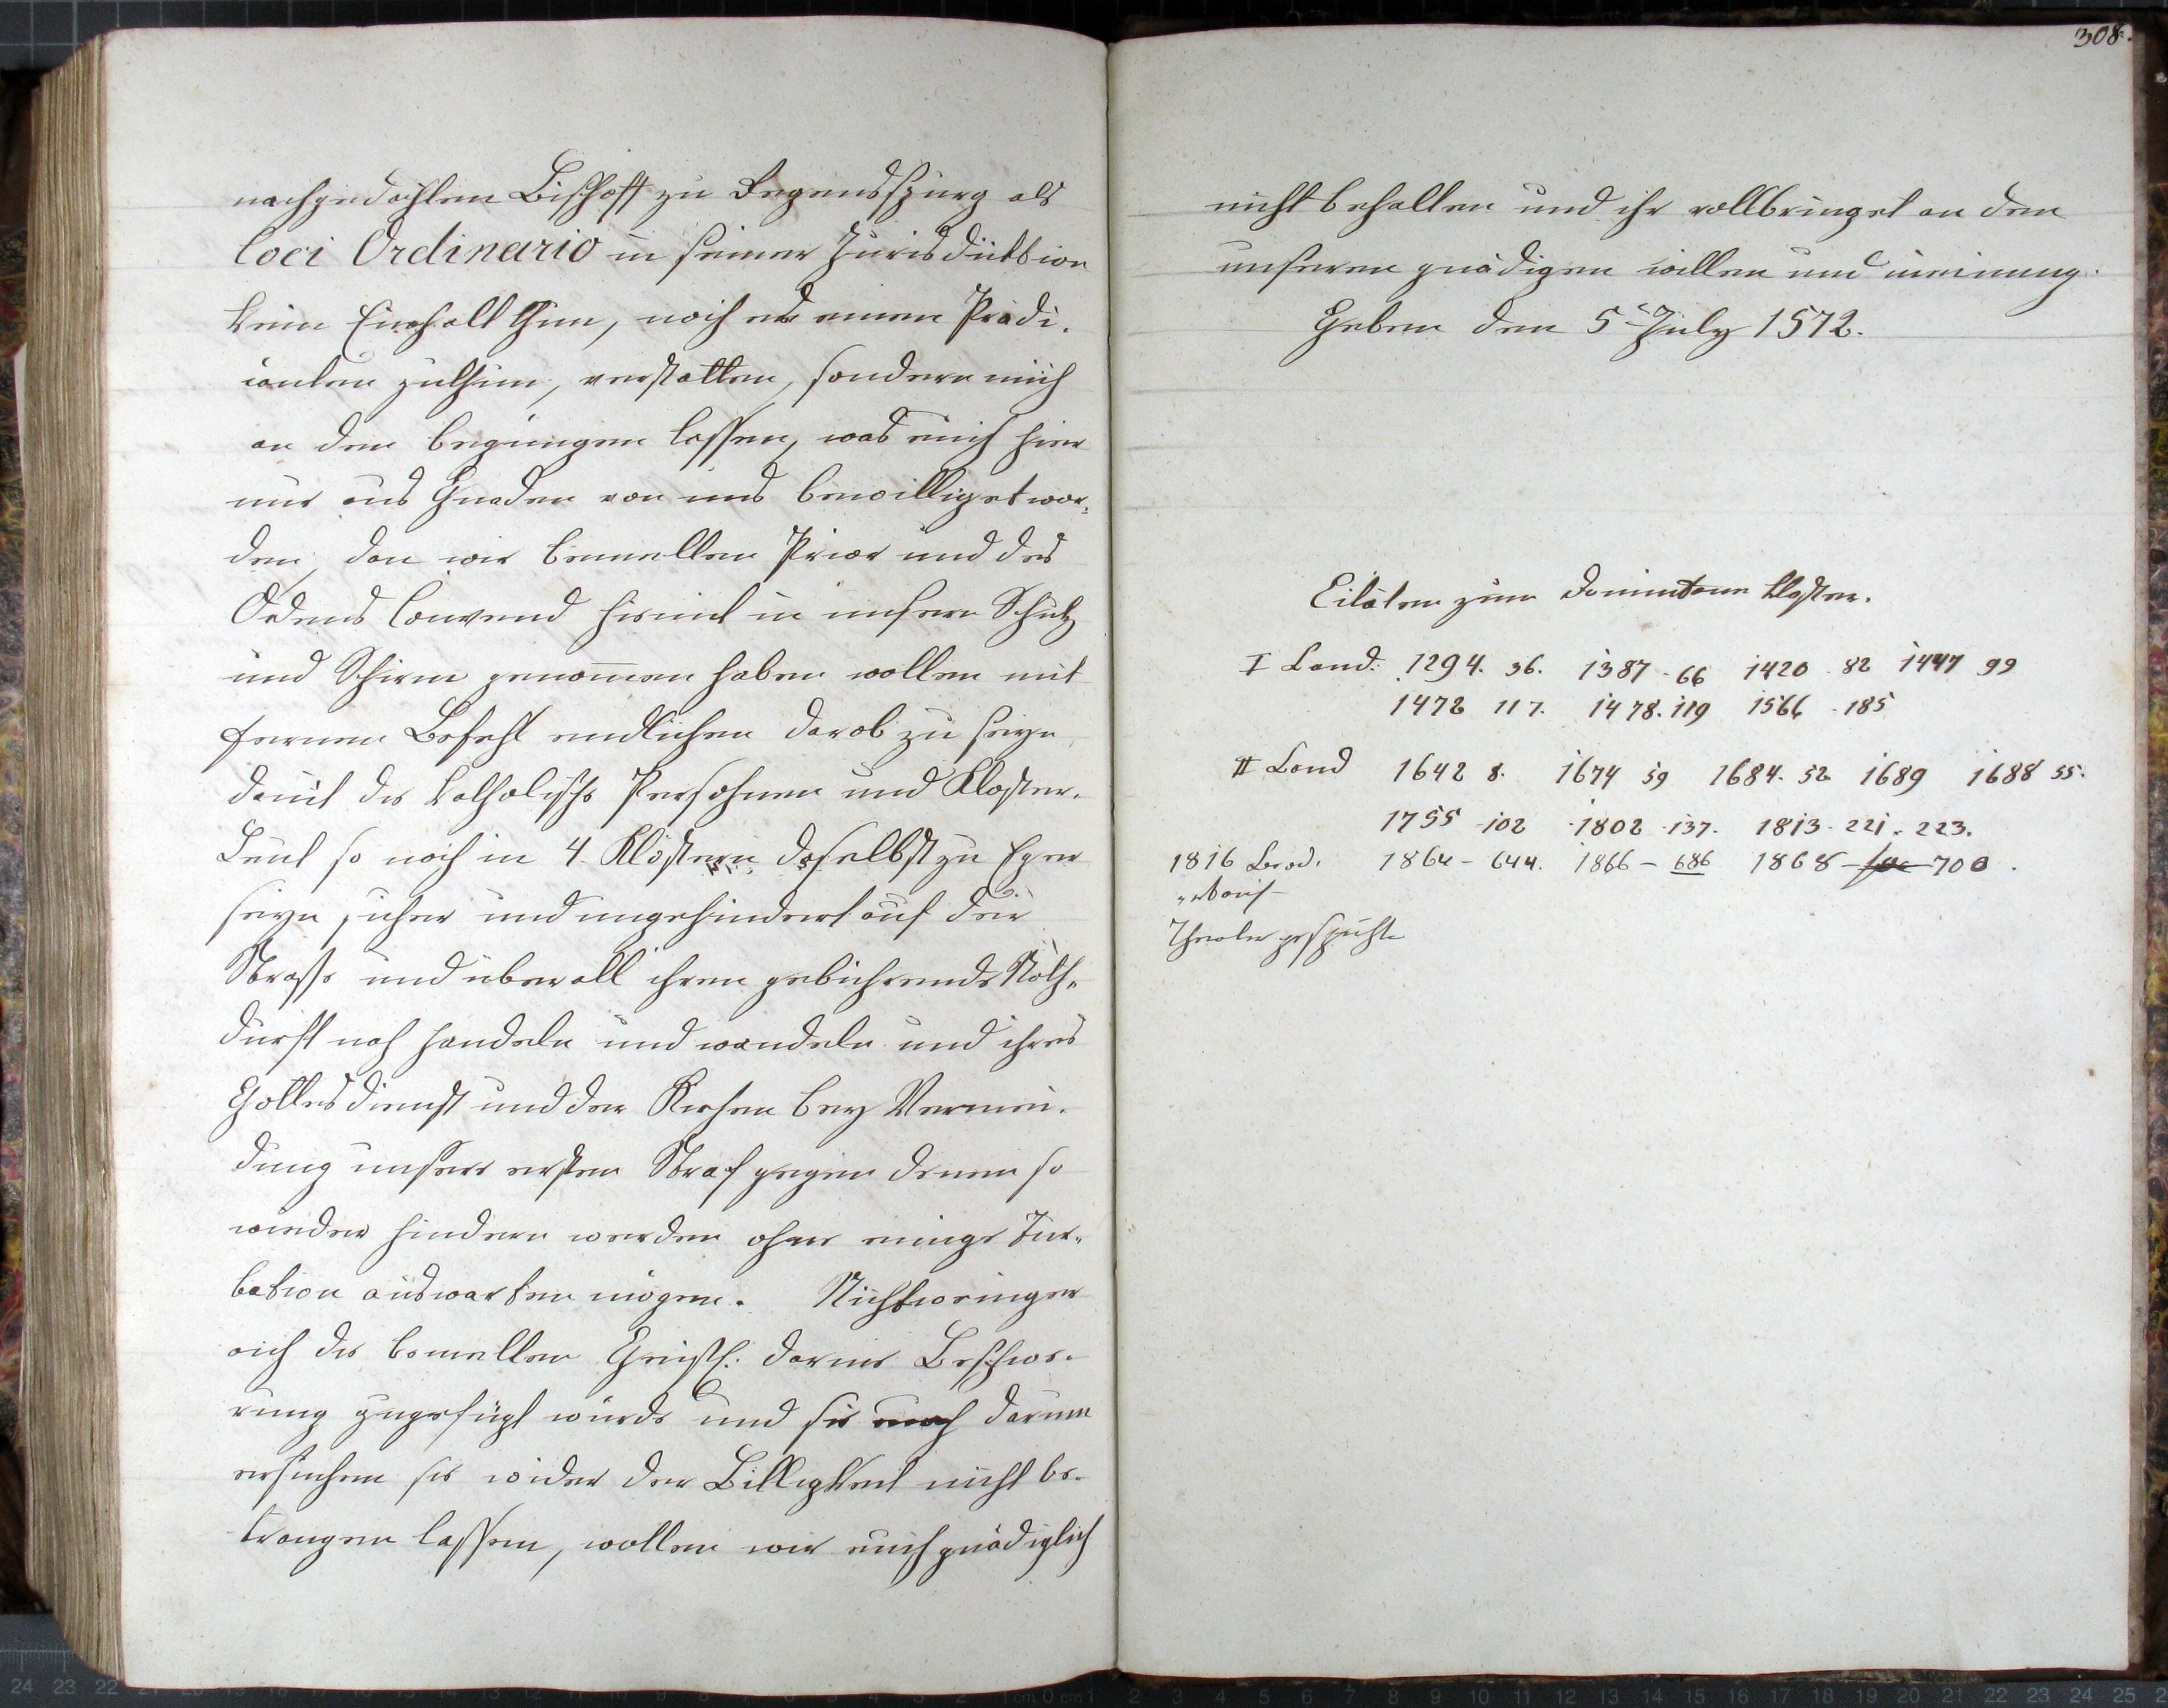 nachgedachten Bischoff zu Regensspurg als
loci Ordinario in seiner Jurisdiktion
kein Einhalt thun, noch es einen Prädi-
canten zuthun, verstatten, sondern euch
an dem begnügen lassen, was euch hier
nur aus Gnaden von uns bewilliget wor-
den, dan wir bemelten Prior und des
Ordens Convend hiemit in unsern Schutz
und Schirm genomen haben wollen mit
fernern Befehl endlichen darob zu seyn,
damit die katholische Persohnen und Kloster-
Leut so noch in 4 Klöstern daselbst zu Eger
seyn, sicher und ungehindert auf der
Strasse und überall ihren gebührende Noth-
durft nach handeln und wandeln und ihres
Gottesdienst und der Kirchen bey Vermei-
dung unserer ersten Straf gegen denen so
wieder hindern werden ohne einige Tur-
bation auswarten mögen. Nichtweniger
auch die bemelten Geistl. darine Beschwe-
rung zugefügt würde und sie euch darum
ersuchen sie wider der Billigkeit nicht be-
trangen lassen, wollen wir euch gnädiglich
308.
nicht behalten und ihr vollbringet an dem
unseren gnädigen willen und meinung.
Geben den 5 July 1572.
Citaten zum Kloster.
I Band: 1294. 36. 1387 - 66 1420 82 1447 99
1472 117. 1478. 119 1566 - 185
II Band 1642 8. 1674 59 1684. 52 1689 1688 55.
1755 - 102 1802 - 137. 1813 - 221. 223.
1816 1864 - 644. 1866 - 686 1868 - 700.